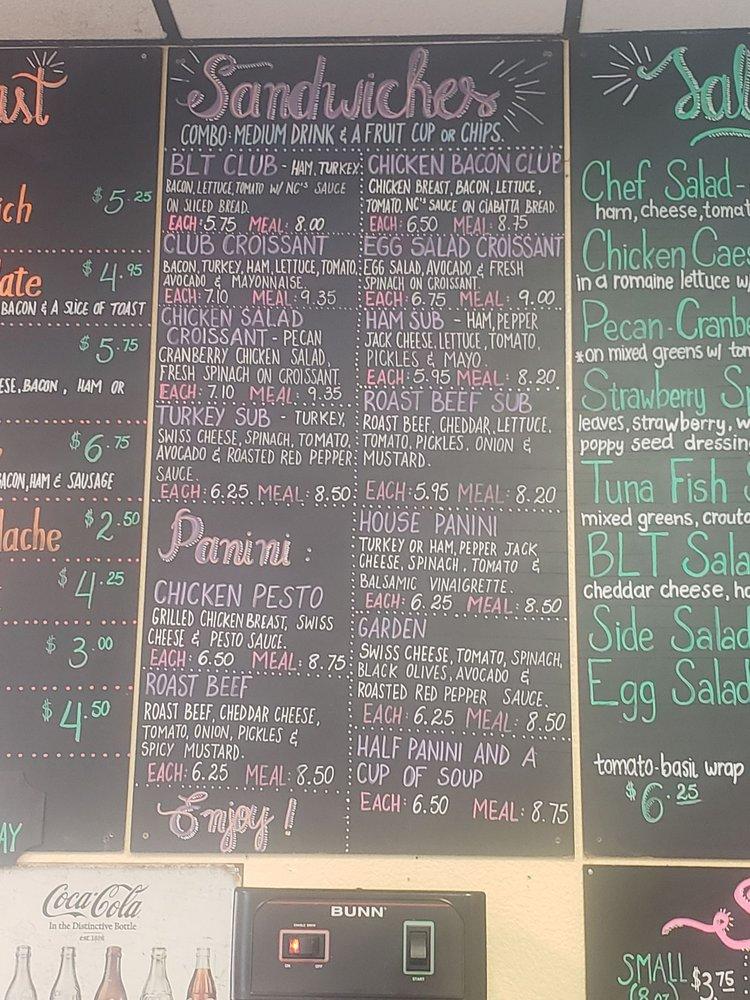 ast
ich $5.25
late $4.95
BACON & A SLICE OF TOAST
$5.75
ESE, BACON, HAM OR
$6.75
BACON, HAM & SAUSAGE
lache $2.50
$4.25
$3.00
$4.50
AY
Sandwiches
COMBO: MEDIUM DRINK & A FRUIT CUP OR CHIPS.
BLT CLUB - HAM, TURKEY
BACON, LETTUCE, TOMATO W/ NC'S SAUCE
ON SLICED BREAD.
EACH: 5.75 MEAL: 8.00
CLUB CROISSANT
BACON, TURKEY, HAM, LETTUCE, TOMATO,
AVOCADO & MAYONNAISE.
EACH: 7.10 MEAL: 9.35
CHICKEN SALAD
CROISSANT - PECAN
CRANBERRY CHICKEN SALAD,
FRESH SPINACH ON CROISSANT
EACH: 7.10 MEAL: 9.35
TURKEY SUB - TURKEY,
SWISS CHEESE, SPINACH, TOMATO,
AVOCADO & ROASTED RED PEPPER
SAUCE.
EACH: 6.25 MEAL: 8.50
CHICKEN BACON CLUB
CHICKEN BREAST, BACON, LETTUCE,
TOMATO, NC'S SAUCE ON CIABATTA BREAD.
EACH: 6.50 MEAL: 8.75
EGG SALAD CROISSANT
EGG SALAD, AVOCADO & FRESH
SPINACH ON CROISSANT.
EACH: 6.75 MEAL: 9.00
HAM SUB - HAM, PEPPER
JACK CHEESE, LETTUCE, TOMATO,
PICKLES & MAYO.
EACH: 5.95 MEAL: 8.20
ROAST BEEF SUB
ROAST BEEF, CHEDDAR, LETTUCE,
TOMATO, PICKLES, ONION &
MUSTARD.
EACH: 5.95 MEAL: 8.20
Panini:
CHICKEN PESTO
GRILLED CHICKEN BREAST, SWISS
CHEESE & PESTO SAUCE.
EACH: 6.50 MEAL: 8.75
ROAST BEEF
ROAST BEEF, CHEDDAR CHEESE,
TOMATO, ONION, PICKLES &
SPICY MUSTARD.
EACH: 6.25 MEAL: 8.50
Enjoy!
HOUSE PANINI
TURKEY OR HAM, PEPPER JACK
CHEESE, SPINACH, TOMATO &
BALSAMIC VINAIGRETTE.
EACH: 6.25 MEAL: 8.50
GARDEN
SWISS CHEESE, TOMATO, SPINACH,
BLACK OLIVES, AVOCADO &
ROASTED RED PEPPER SAUCE.
EACH: 6.25 MEAL: 8.50
HALF PANINI AND A
CUP OF SOUP
EACH: 6.50 MEAL: 8.75
Sal
Chef Salad -
ham, cheese, tomat
Chicken Caes
in a romaine lettuce w/
Pecan-Cranbe
*on mixed greens w/ tom
Strawberry Sp
leaves, strawberry, w
poppy seed dressin
Tuna Fish S
mixed greens, crouto
BLT Sala
cheddar cheese, ha
Side Salad
Egg Salad
tomato-basil wrap
$6.25
SMALL
(8oz) $3.75
Coca-Cola
In the Distinctive Bottle
est 1886
BUNN
ON OFF
START